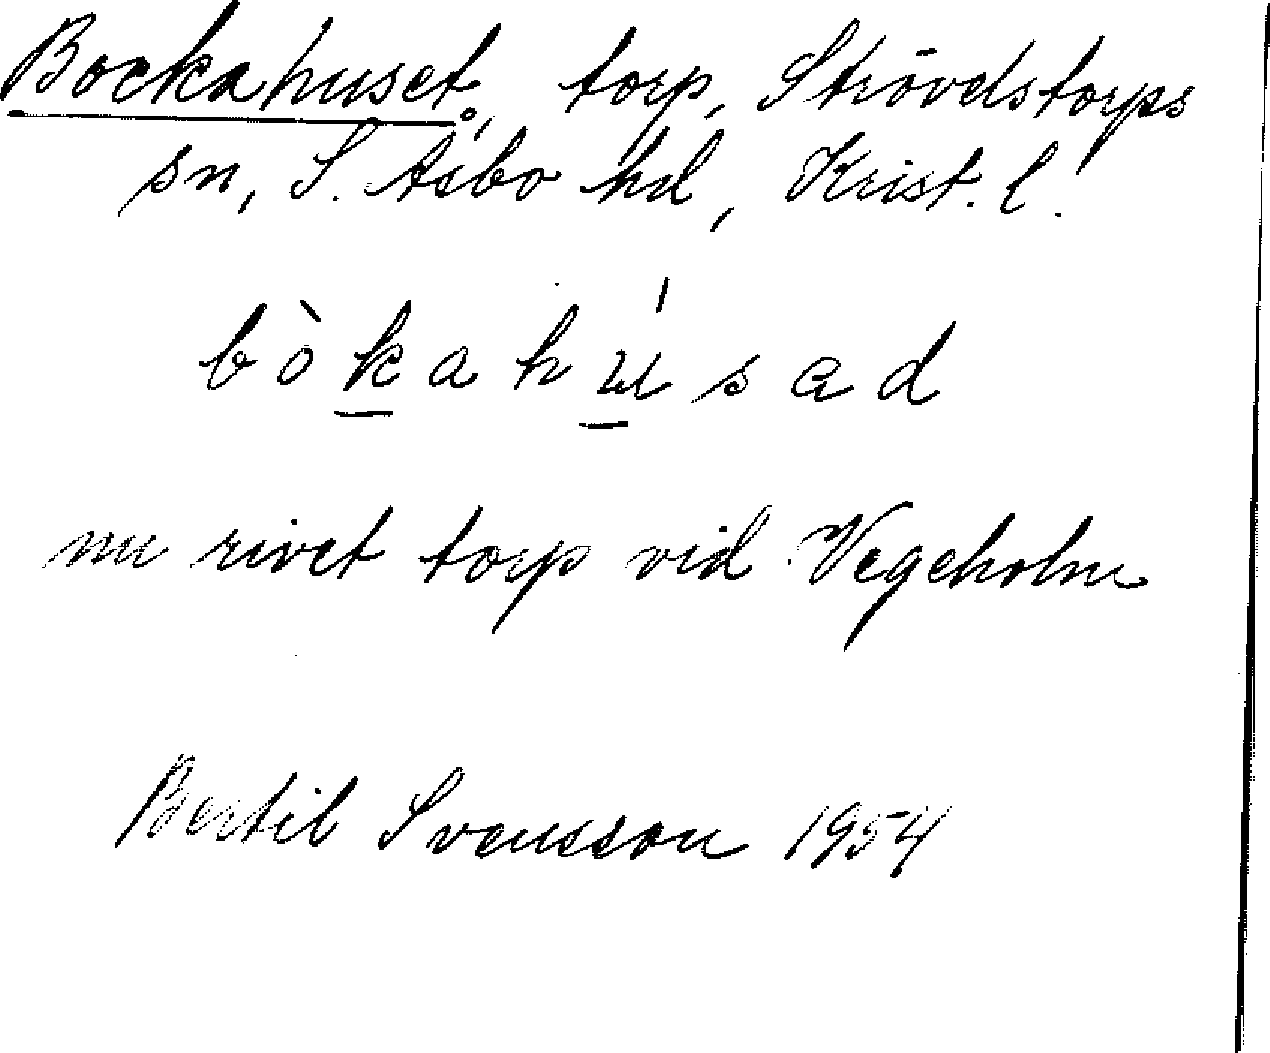 Bockahuset, torp, Strövelstorps
sn, S. Åsbo hd, Krist. l.
bòkahúsad
nu rivet torp vid Vegeholm
Bertil Svensson 1954